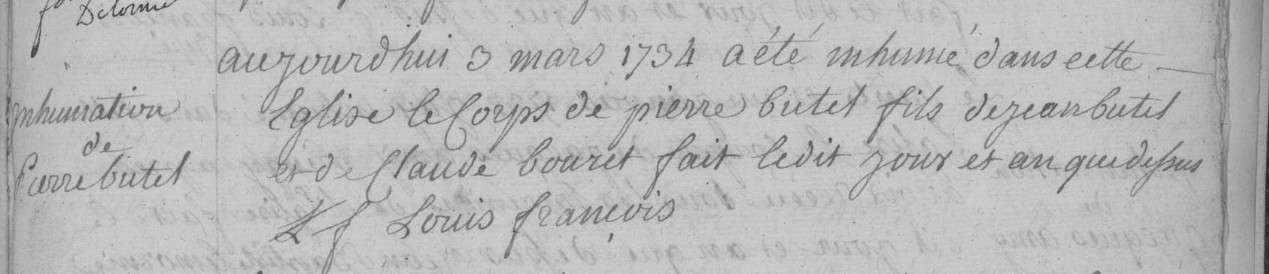 Delorme
aujourdhui 3 mars 1734 a été inhumé dans cette
Inhumation
de
Pierre butel
Eglise le Corps de pierre butel fils de jean butel
et de Claude bouret fait ledit jour et an que dessus
f Louis françois